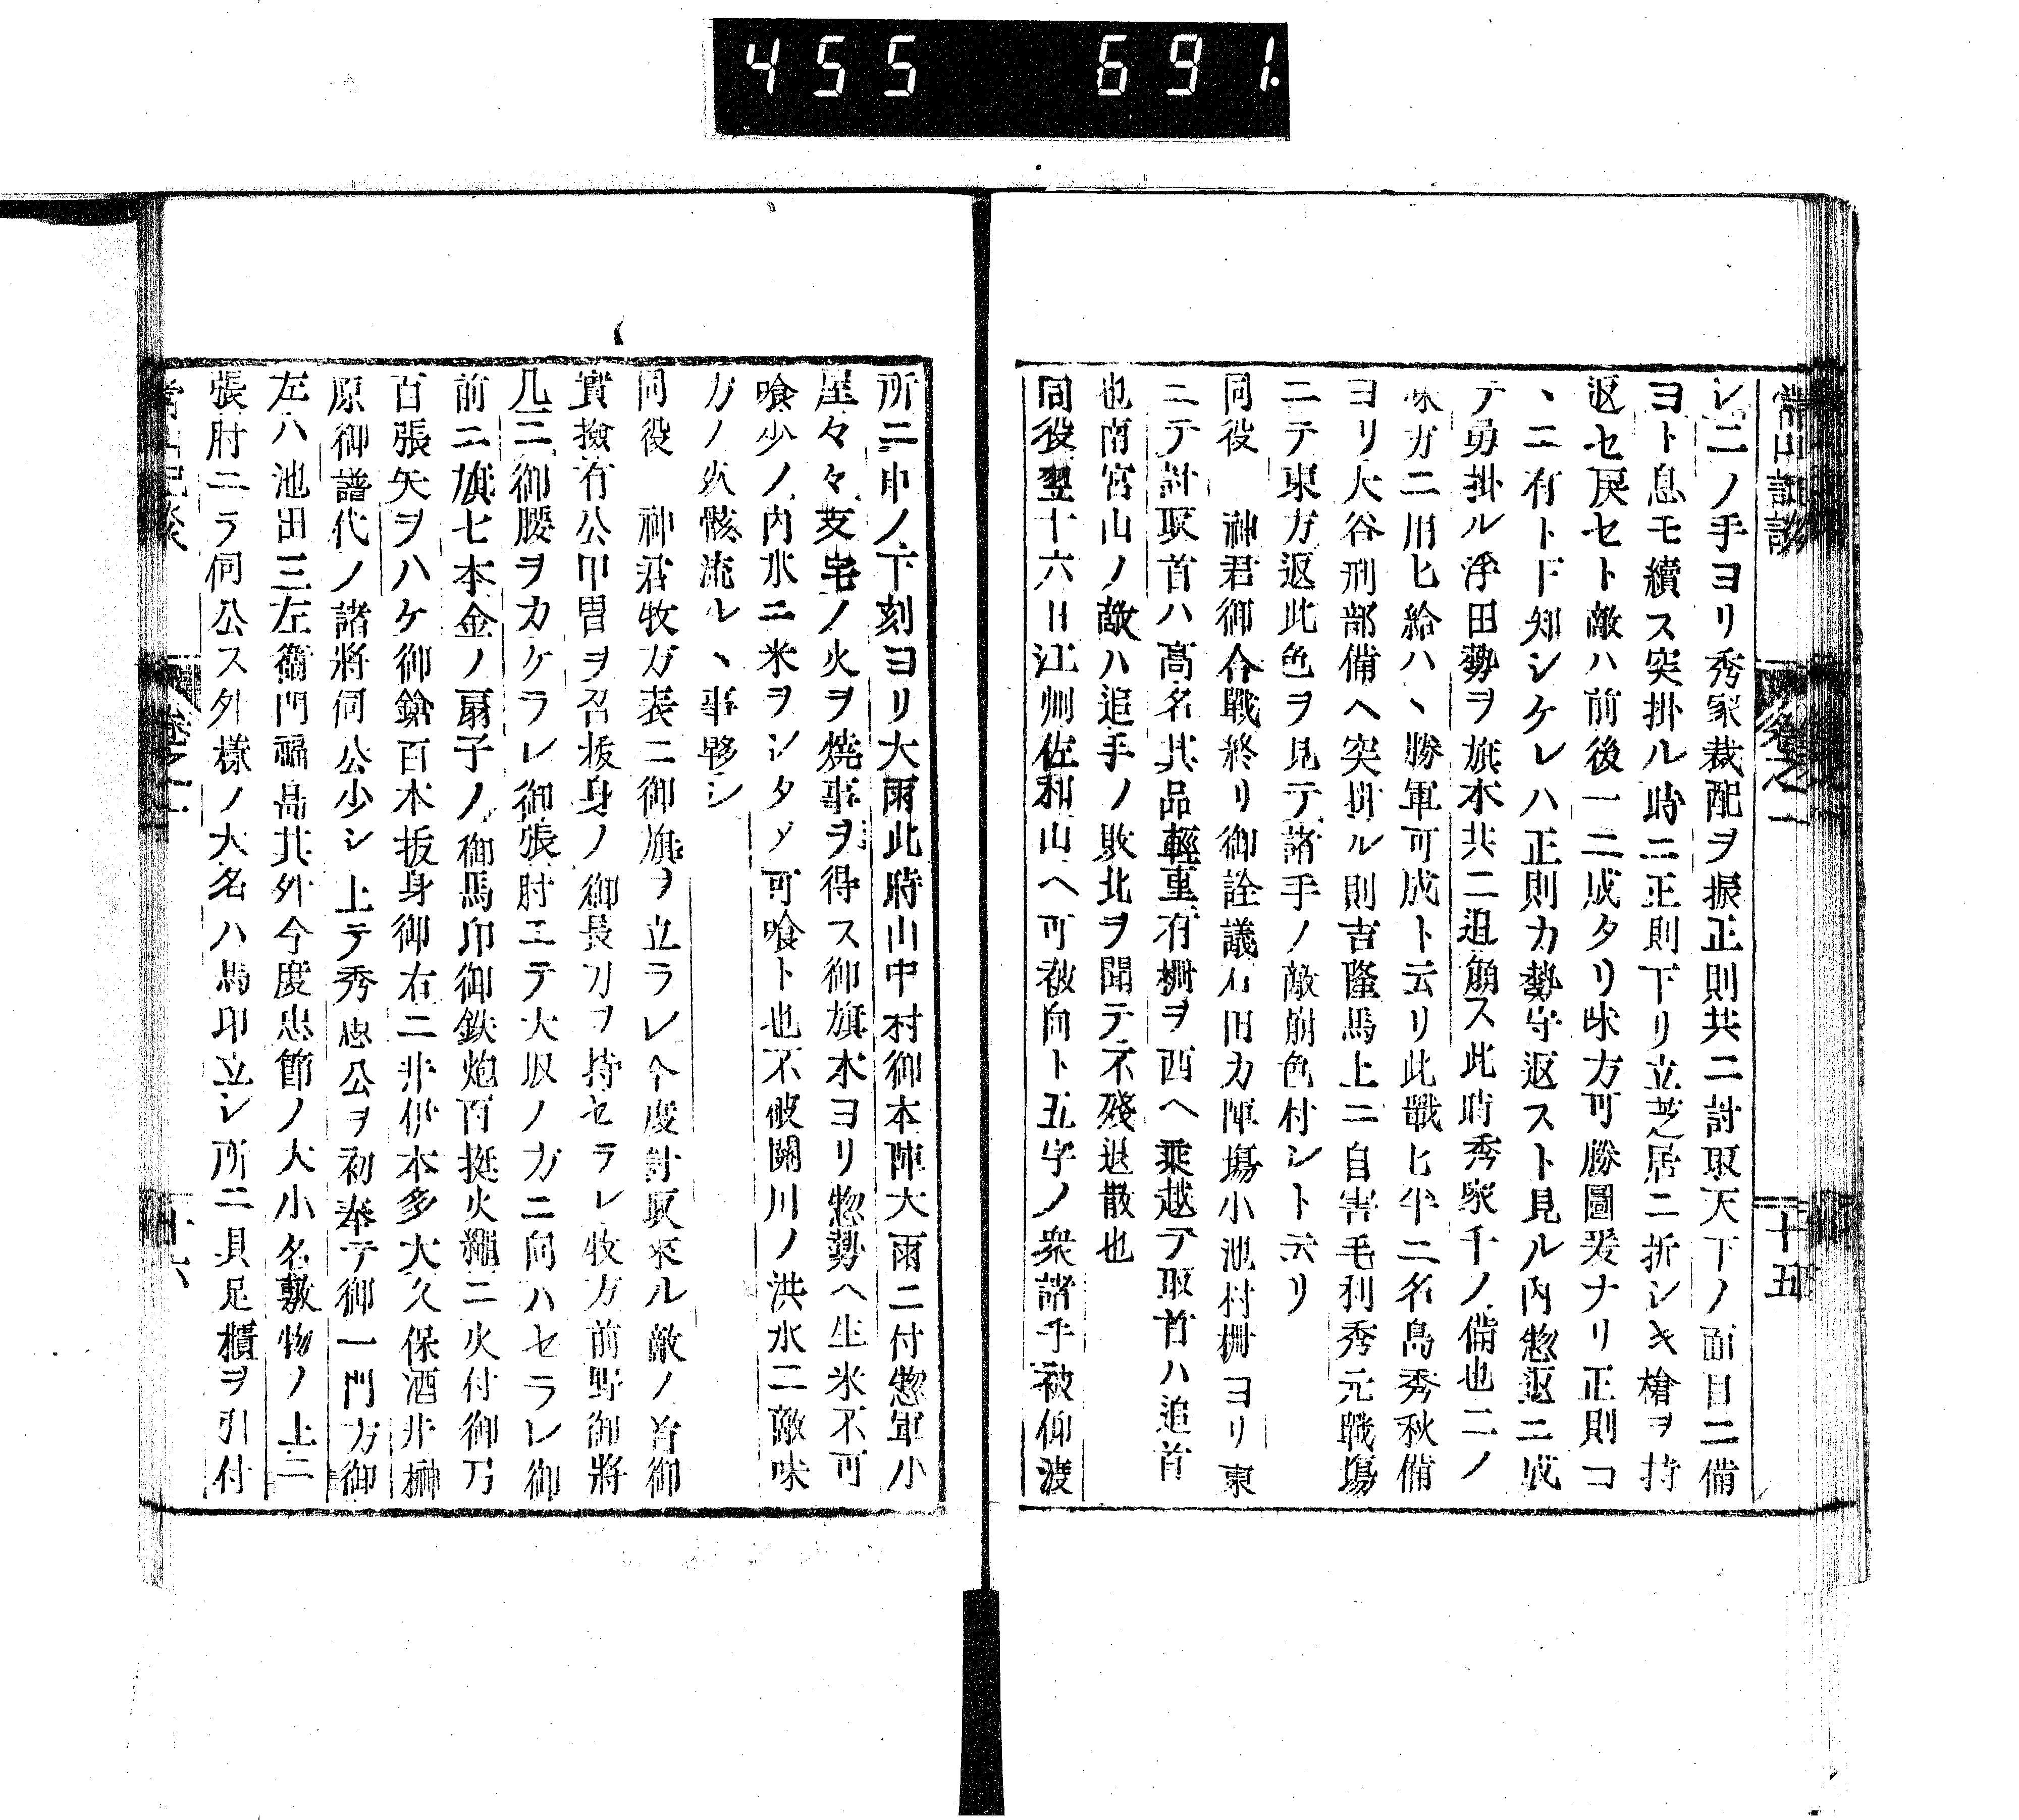 455 691
常山記談 卷之一 十五
シ二ノ手ヨリ秀家裁配ヲ振正則共ニ討取天下ノ面目ニ備
ヨト息モ續ス突掛ル時ニ正則下リ立芝居ニ折シキ槍ヲ持
返セ戻セト敵ハ前後一ニ成タリ味方可勝圖爰ナリ正則コ
丶ニ有ト下知シケレハ正則カ勢守返スト見ル内惣返ニ成
テ勇掛ル浮田勢ヲ旗本共ニ追崩ス此時秀家千ノ備也二ノ
味方ニ用ヒ給ハ丶勝軍可成ト云リ此戰ヒ半ニ名島秀秋備
ヨリ大谷刑部備ヘ突掛ル則吉隆馬上ニ自害毛利秀元戰塲
ニテ東方返此色ヲ見テ諸手ノ敵崩色村シト云リ
同役 神君御合戰終リ御詮議石田カ陣塲小池村柵ヨリ東
ニテ討取首ハ高名其品輕重有柵ヲ西ヘ乗越テ取首ハ追首
也南宮山ノ敵ハ追手ノ敗北ヲ聞テ不殘退散也
同役翌十六日江州佐和山ヘ可被向ト五字ノ衆諸手被仰渡
所ニ申ノ下刻ヨリ大雨此時山中村御本陣大雨ニ付惣軍小
屋々々支宅ノ火ヲ燒事ヲ得ス御旗本ヨリ惣勢ヘ生米不可
喰少ノ内水ニ米ヲシタヾ可喰ト也不破關川ノ洪水ニ敵味
方ノ死骸流ル丶事夥シ
同役 神君牧方表ニ御旗ヲ立ラレ今度討取來ル敵ノ首御
實撿有公甲冑ヲ召抜身ノ御長刀ヲ持セラレ牧方前野御將
几ニ御腰ヲカケラレ御張肘エテ大坂ノ方ニ向ハセラレ御
前ニ旗七本金ノ扇子ノ御馬印御鉄炮百挺火繩ニ火付御弓
百張矢ヲハケ御鎗百本抜身御右ニ井伊本多大久保酒井榊
原御譜代ノ諸將伺公少シ上テ秀忠公ヲ初奉テ御一門方御
左ハ池田三左衞門福島其外今度忠節ノ大小名敷物ノ上ニ
張肘ニラ伺公ス外樣ノ大名ハ馬印立シ所ニ具足櫃ヲ引付
常山記談 卷之一 十六